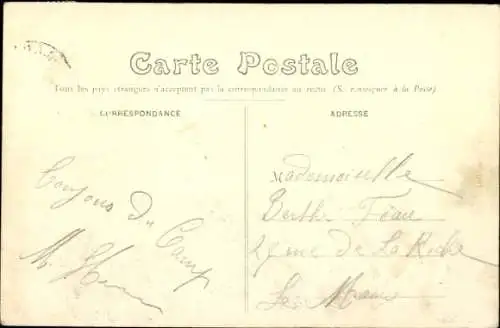 Carte Postale
Tous les pays étrangers n'acceptent pas la correspondance au recto (S. renseigner à la Poste)
CORRESPONDANCE
ADRESSE
Toujours Du Camp
Mademoiselle
Berthe Féau
29 rue de La Riche
Le Mans